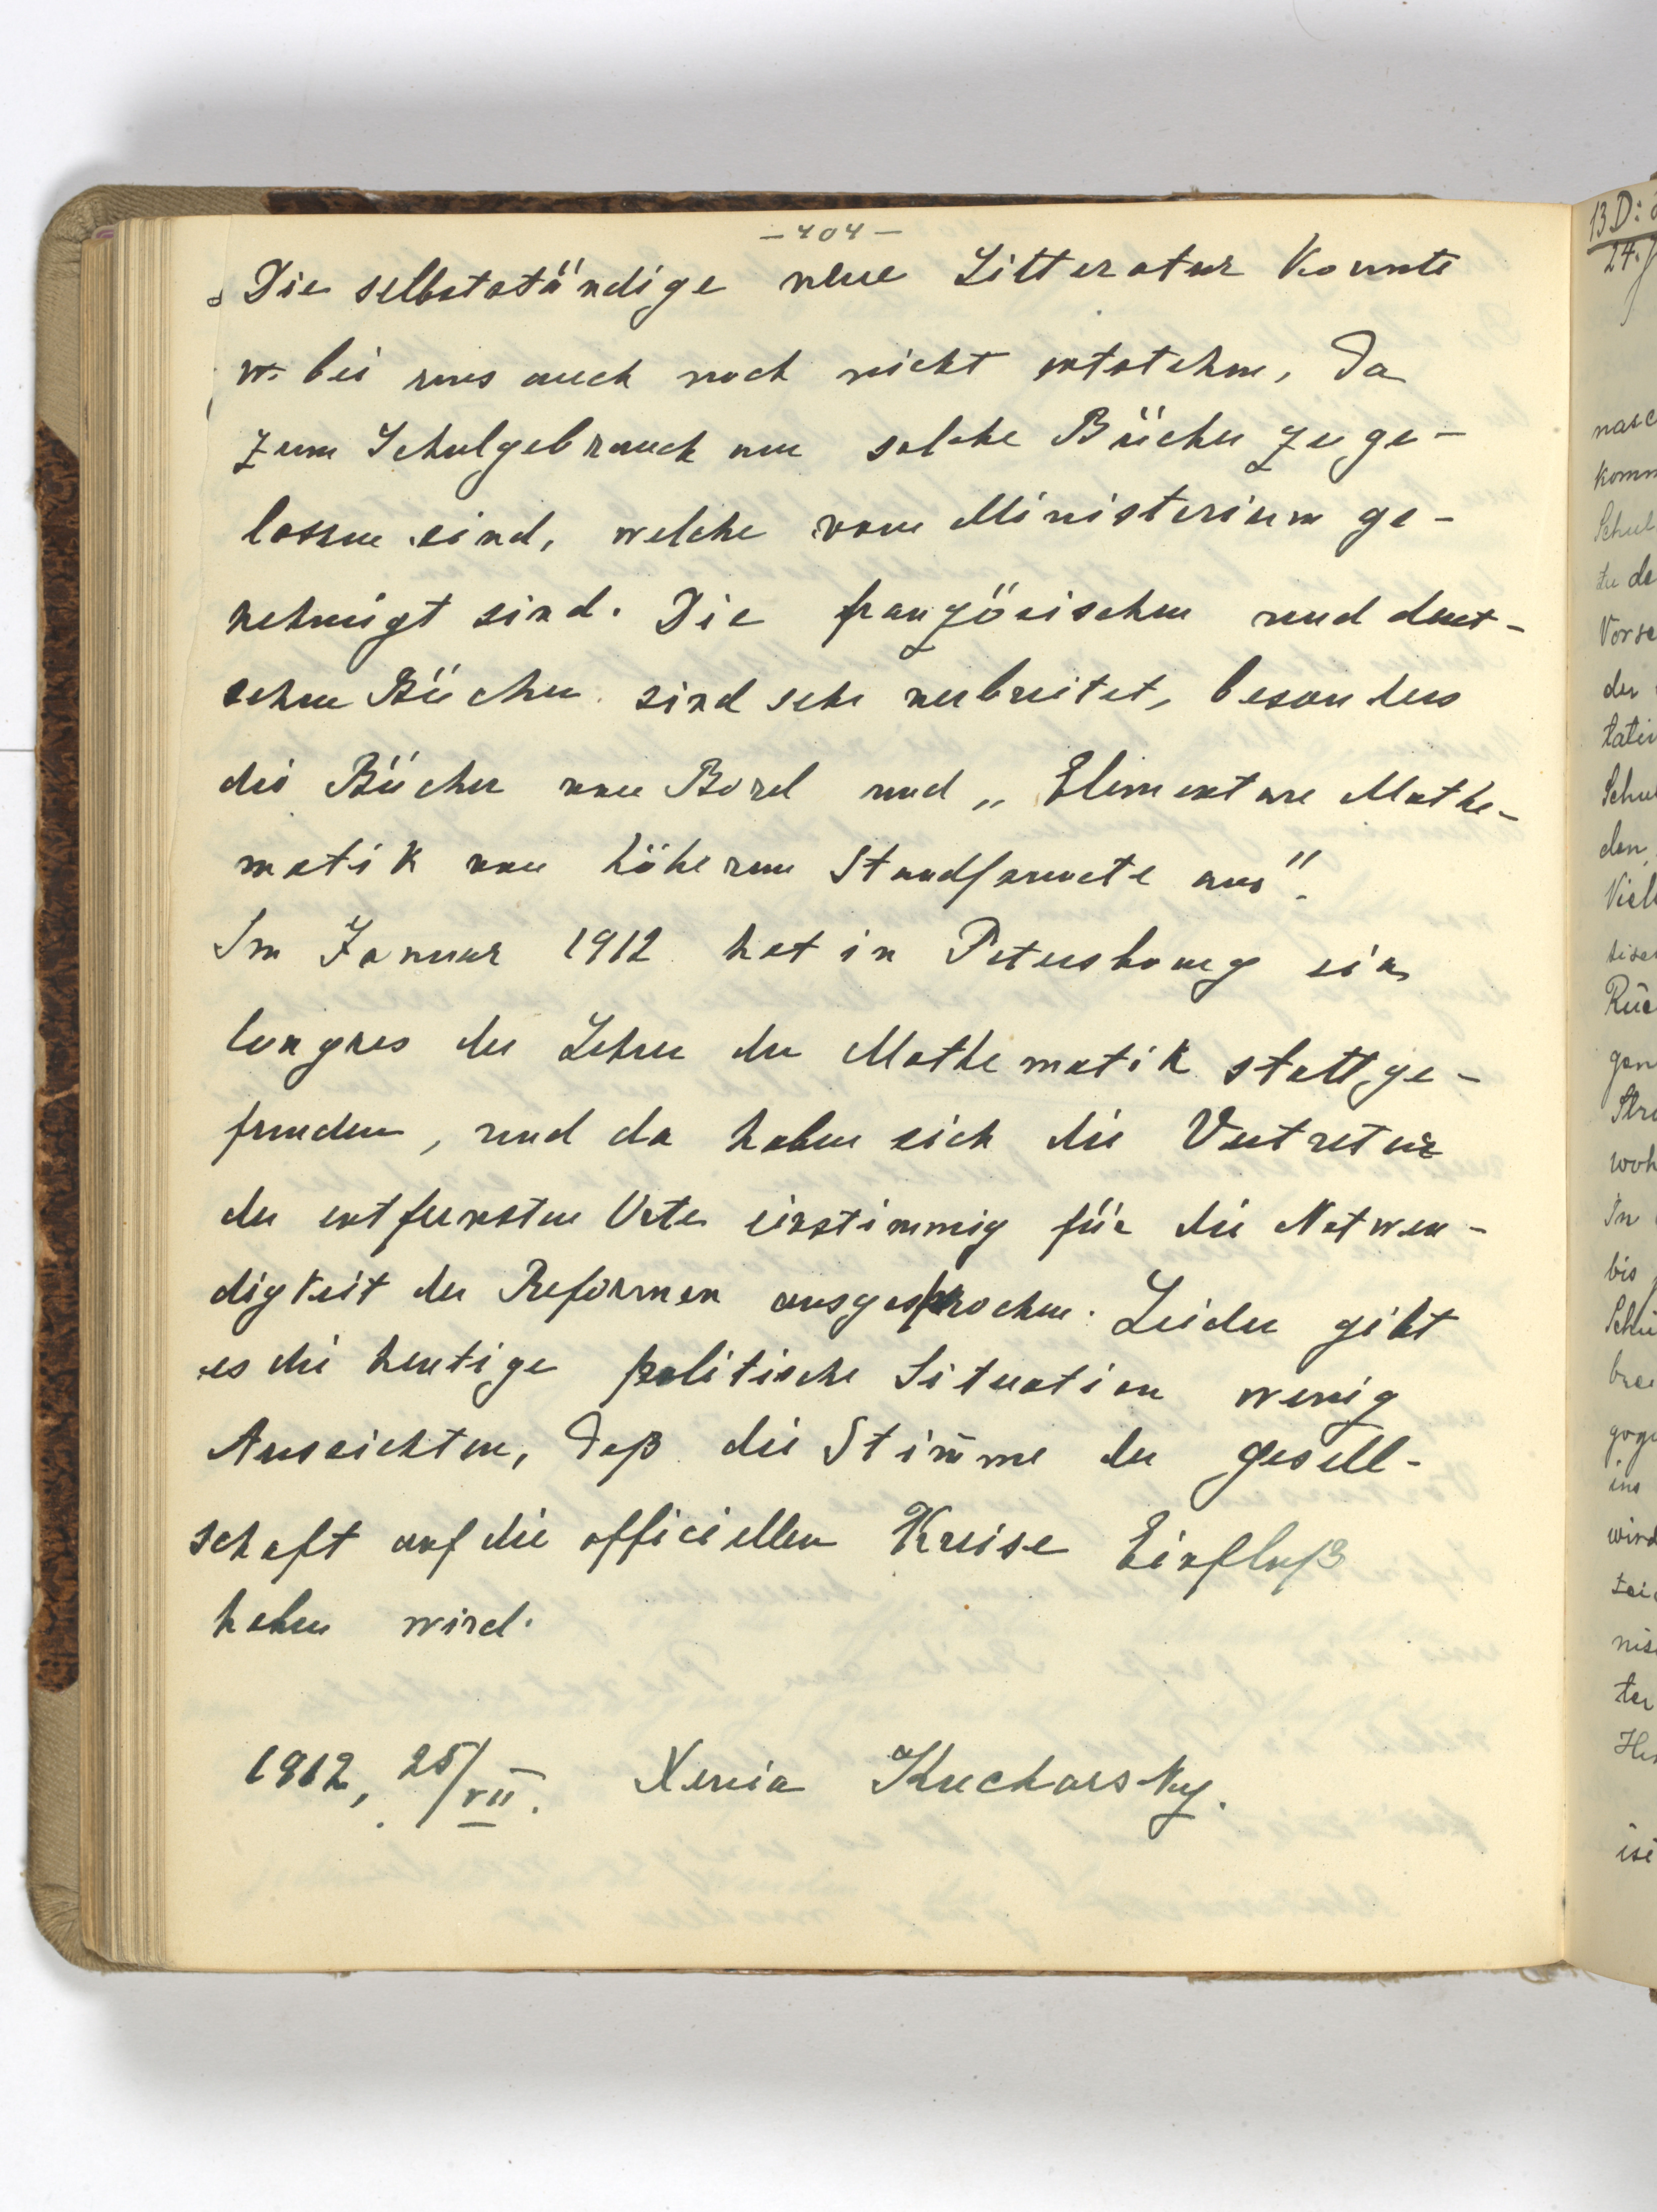 - 404 -
Die selbstständige neue Litteratur konnte
bei uns auch noch nicht entstehen, da
zum Schulgebrauch nur solche Bücher zuge-
lassen sind, welche vom Ministerium ge-
nehmigt sind. Die französischen und deut-
schen Bücher sind sehr verbreitet, besonders
die Bücher von Borel und „Elementare Mathe-
matik von höherem Standpunkte aus".
Im Januar 1912 hat in Petersbourg ein
Congres der Lehrer der Mathematik stattge-
funden, und da haben sich die Vertreter
der entfernsten Orte einstimmig für die Notwen-
digkeit der Reformen ausgesprochen. Leider gibt
es die heutige politische Situation wenig
Aussichten, daß die Stimme der Gesell-
schaft auf die officiellen Kreise Einfluß
haben wird.
1912, 25/VII. Xenia Kucharsky.
13 D:
24.
nasc
komm
Schul
zu de
Vorse
der
tatei
Schul
den
Viel
tiser
Rüc
gen
Stru
woh
In
bis
Schü
bree
goge
ins
wird
nis
ter
ist